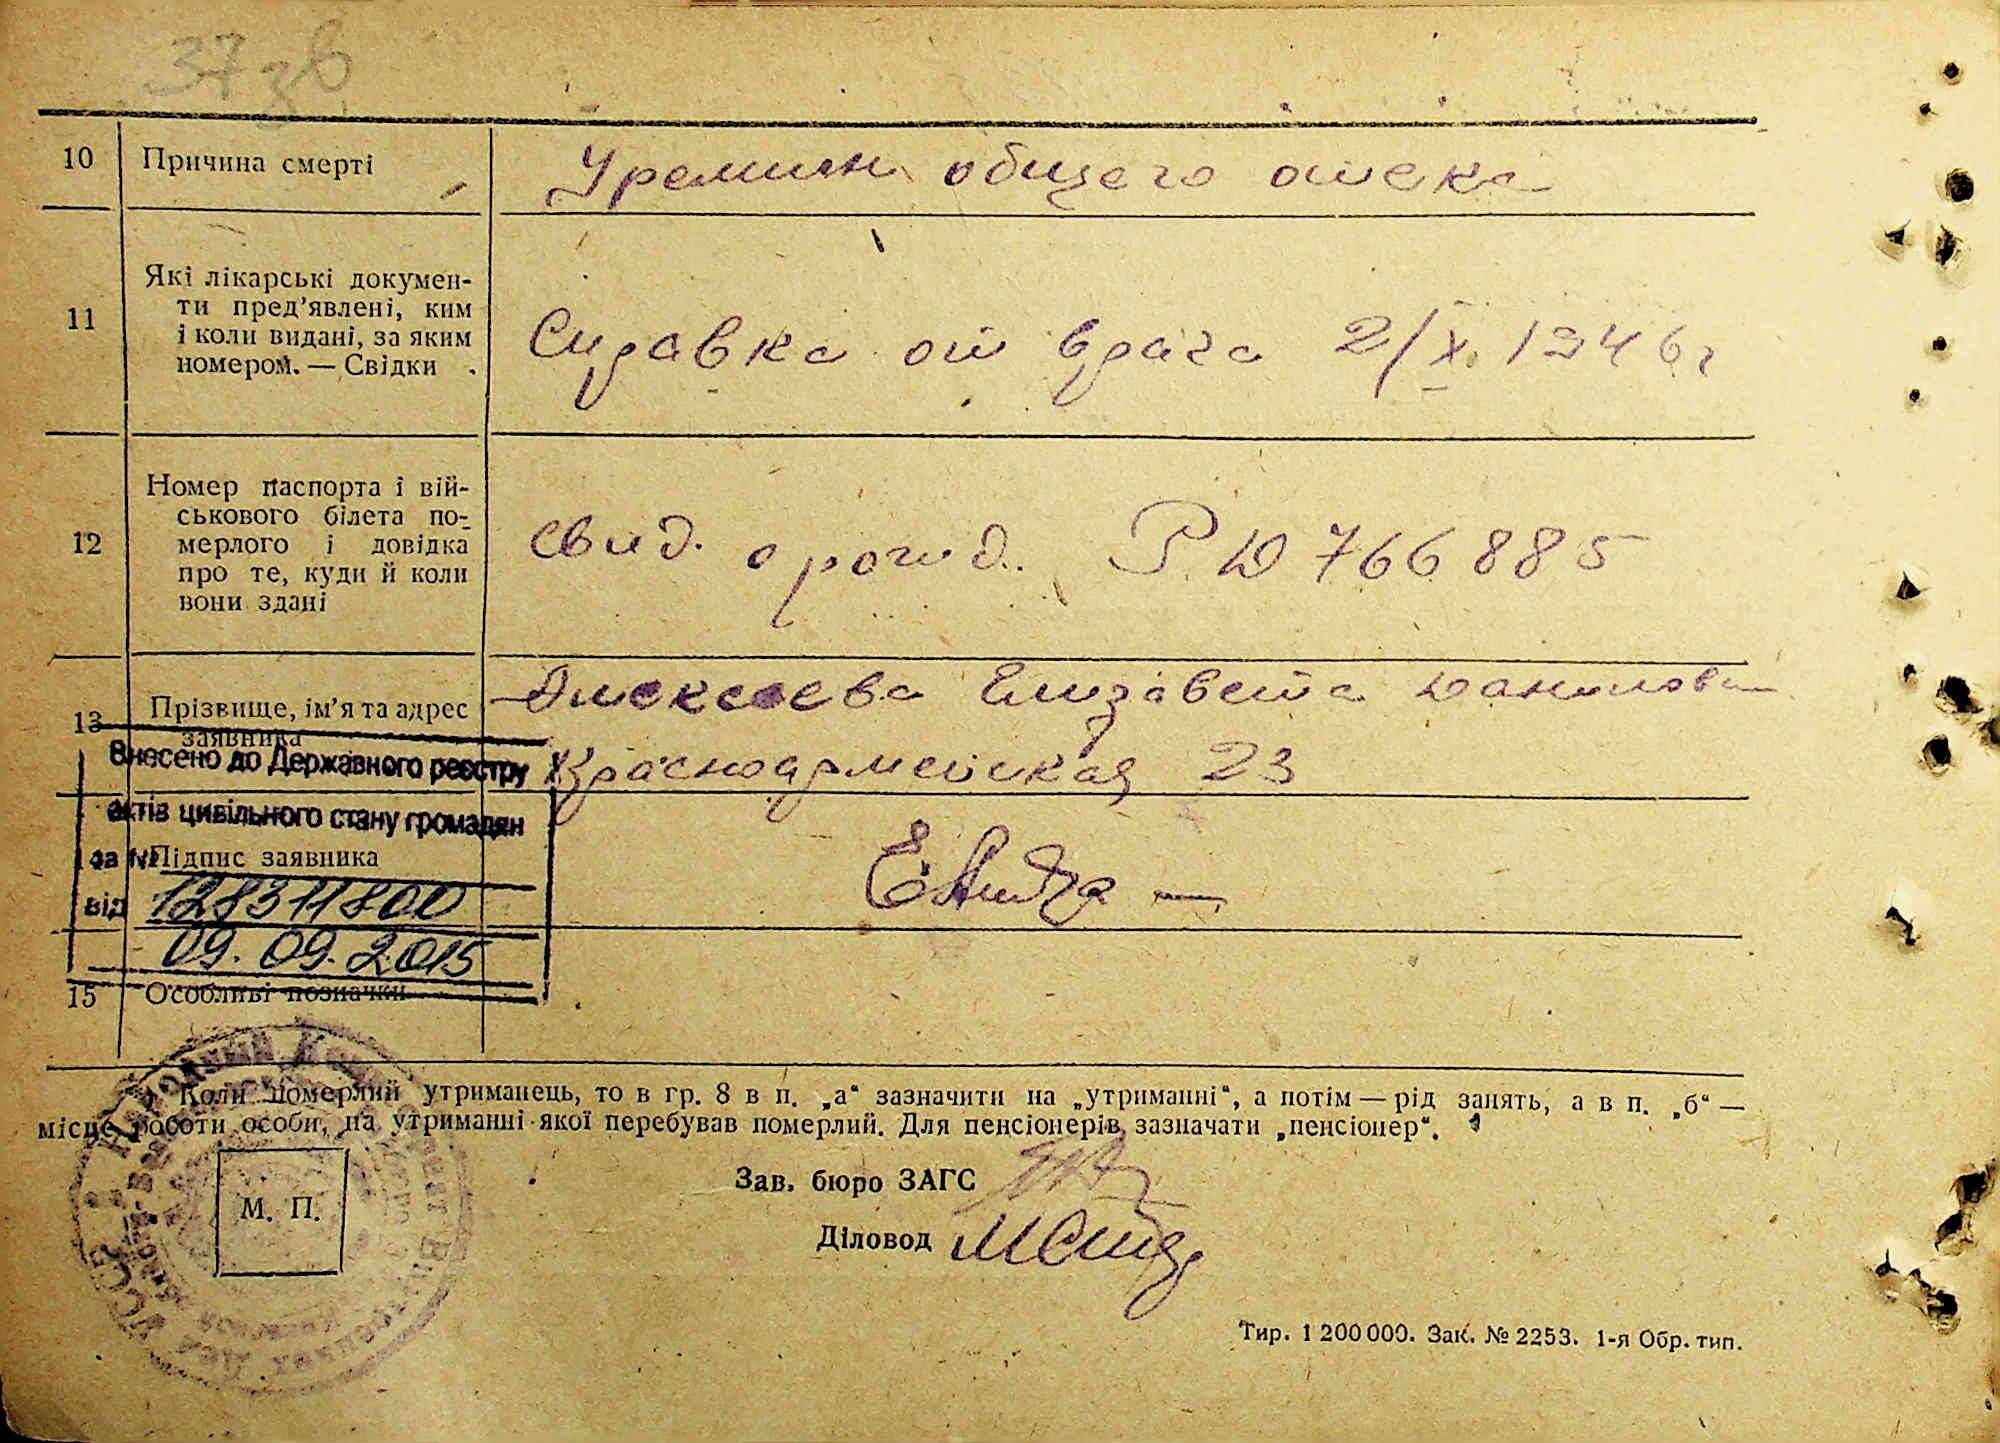 37 зв
10 Причина смерті Уремиян общего отека
11 Які лікарські докумен-
ти пред'явлені, ким
і коли видані, за яким
номером. — Свідки
Справка от врача 2/X. 1946 г
12 Номер паспорта і вій-
ськового білета по-
мерлого і довідка
про те, куди й коли
вони здані
свид. о рожд. РД 766885
13 Прізвище, ім'я та адрес
заявника
Алексеева Елизавета Даниловн
Красноармейская 23
Внесено до Державного реєстру
актів цивільного стану громадян
за №
Підпис заявника
128311800
від 09.09.2015
15 Особливі позначки
Коли померлий утриманець, то в гр. 8 в п. „а“ зазначити на „утриманні“, а потім — рід занять, а в п. „б“ —
місце роботи особи, на утриманні якої перебував померлий. Для пенсіонерів зазначати „пенсіонер“.
М. П.
Зав. бюро ЗАГС
Діловод
Тир. 1 200 000. Зак. № 2253. 1-я Обр. тип.